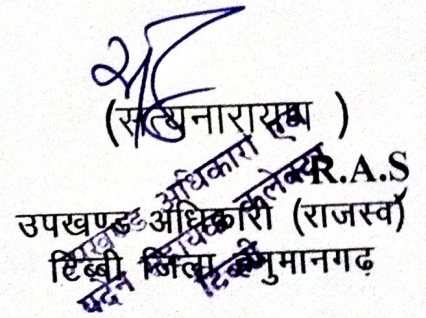 (सत्यनारायण )
R.A.S
उपखण्ड अधिकारी (राजस्व)
टिब्बी जिला हनुमानगढ़
उपखण्ड अधिकारी एवं
पदेन सहायक कलेक्टर
टिब्बी